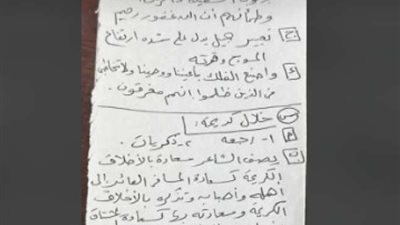 وطمأنهم أن الله غفور رحيم
ج تعبير جميل يدل على شدة ارتفاع
الموج وقوته
د واصنع الفلك بأعيننا ووحينا ولا تخاطبني
في الذين ظلموا إنهم مغرقون.
س خلال كريمة:
م ١- أ جمعه ٢- ذكريات.
ن يصف الشاعر سعادة بالأخلاق
الكريمة كسعادة المسافر العائد إلى
أهله وأحبابه وتذكره بالأخلاق
الكريمة وسعادته بها كسعادة